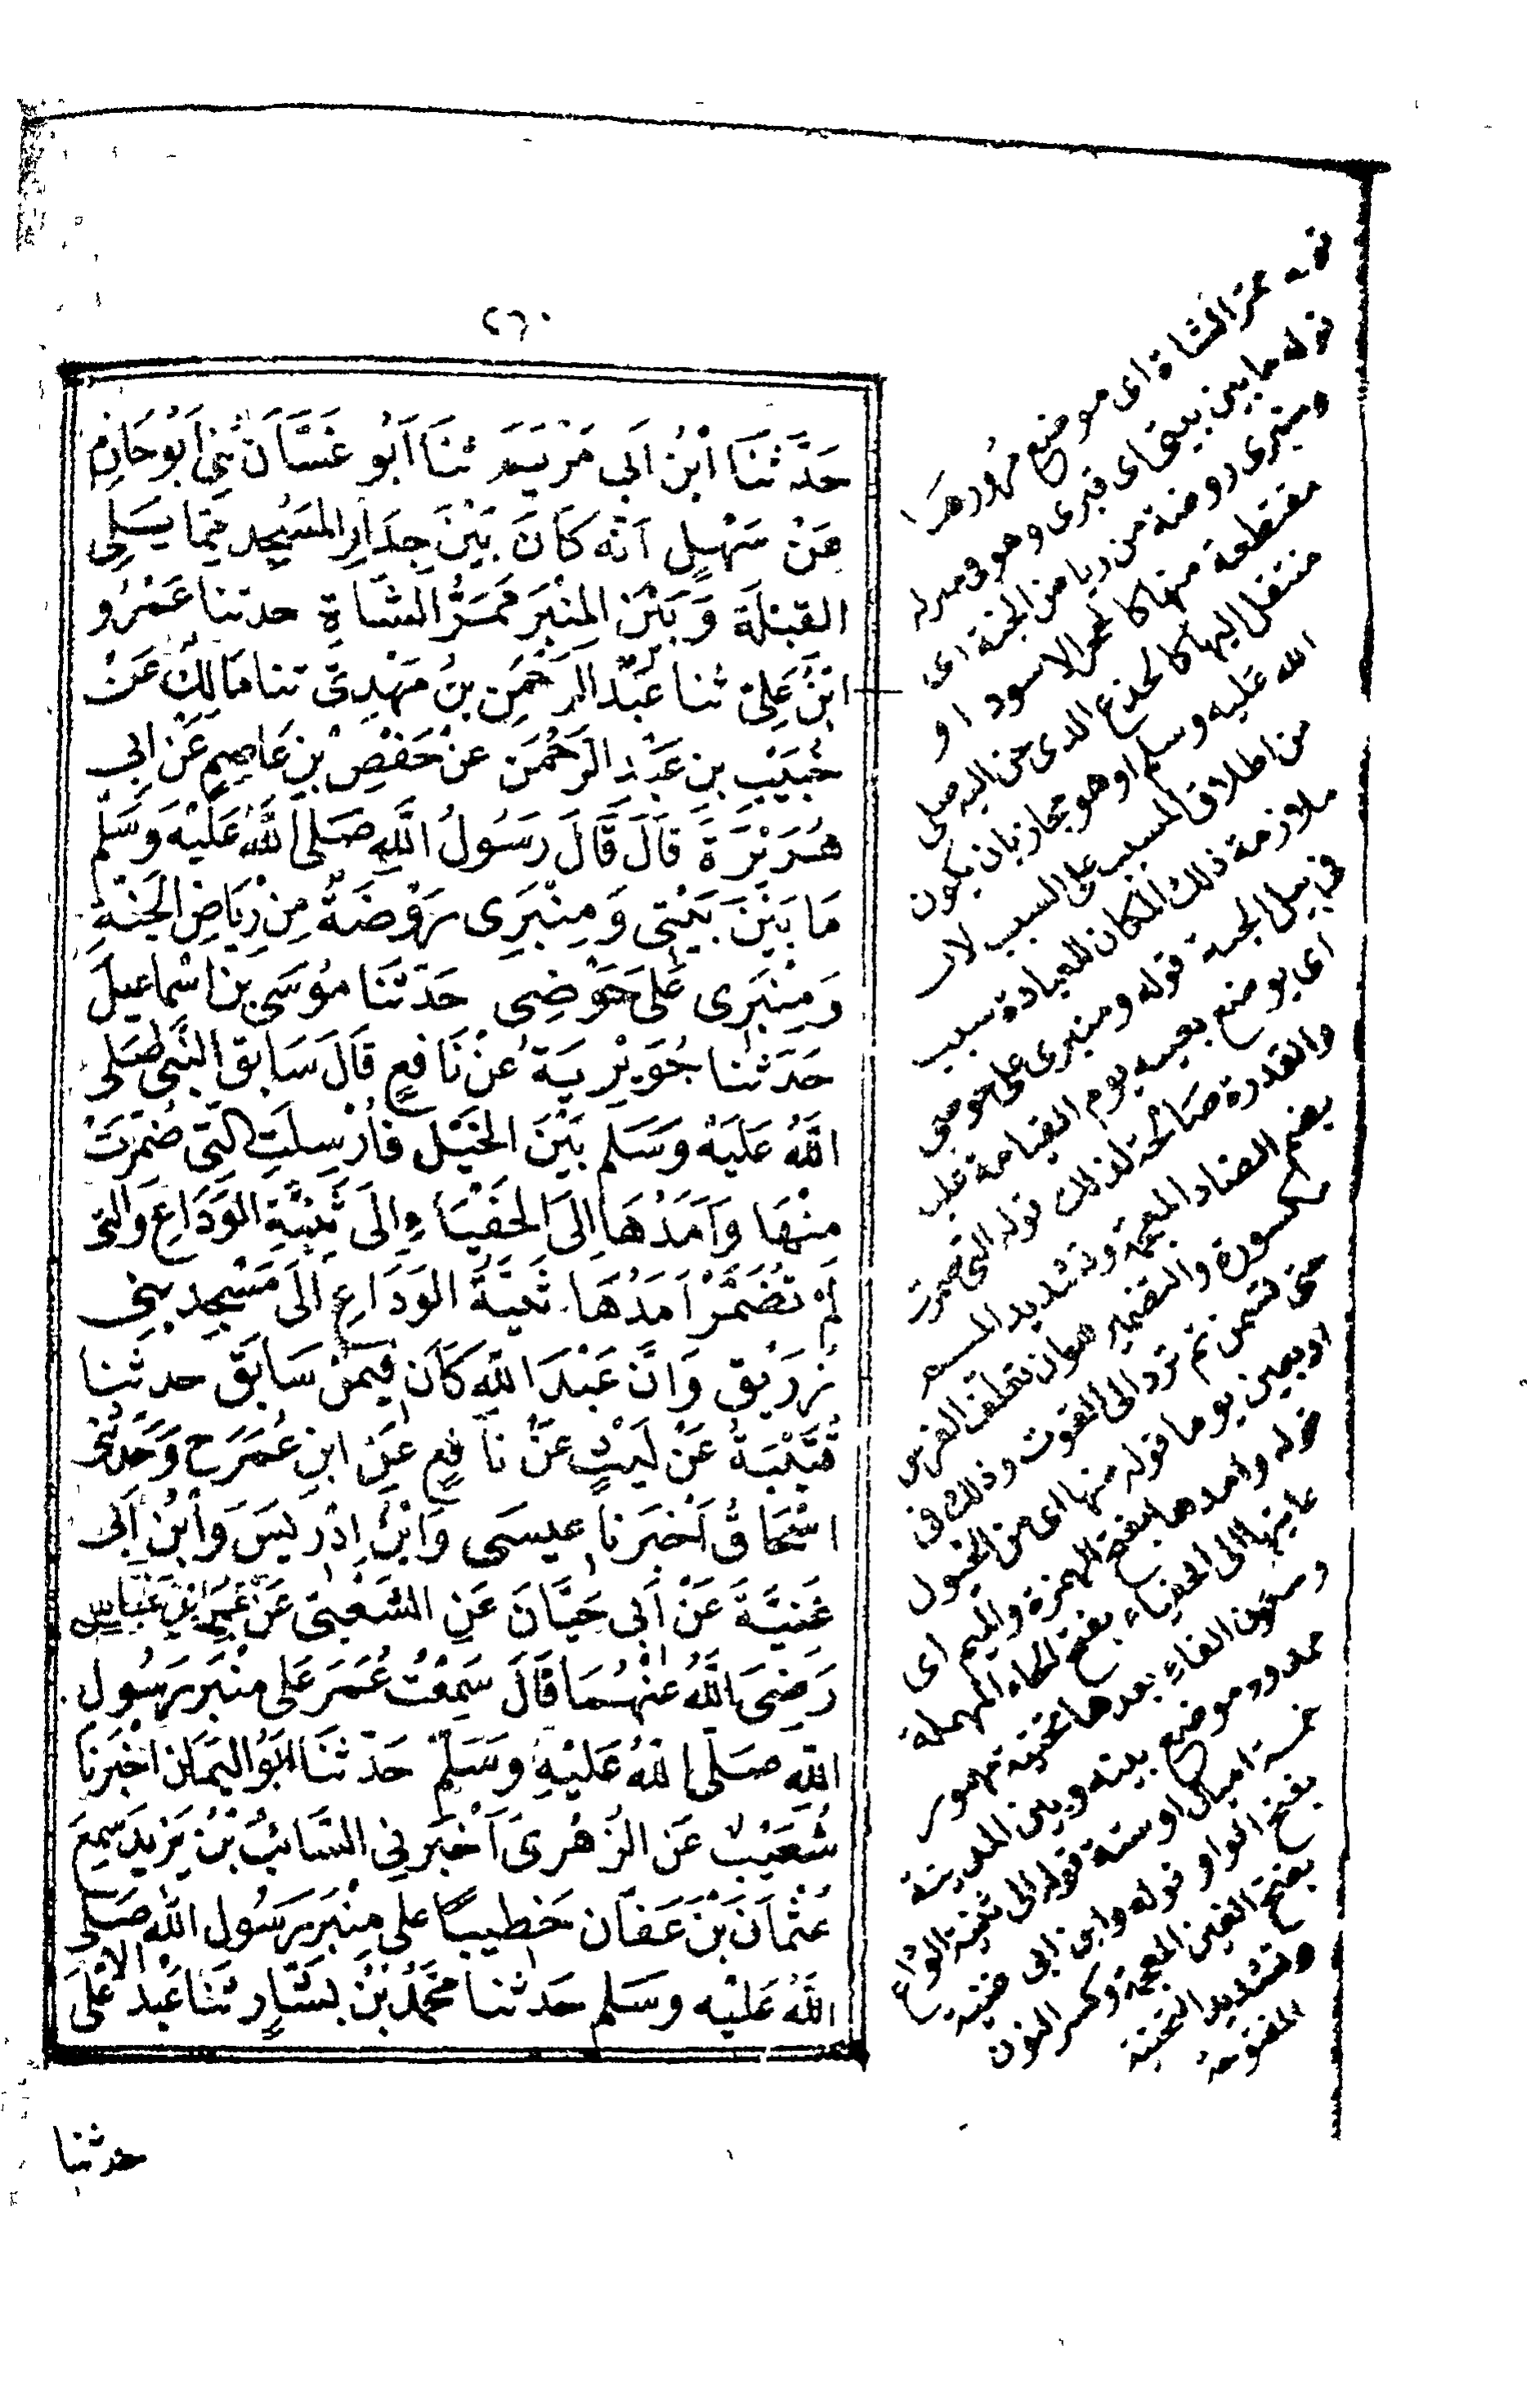 ٢٦٠
حَدَّثَنَا ابْنُ اَبِى مَرْيَمَ ثَنَا اَبُو غَسَّانَ ثَنِى اَبُو حَازِمٍ
عَنْ سَهْلٍ اَنَّه كَانَ بَيْنَ جِدَارِ المَسْجِدِ مِمَّا يَسَلِى
القِبْلَةَ وَبَيْنَ المِنْبَرِ مَمَرُّ الشَّاةِ حدثنا عَمْرُو
ابْنُ عَلِىّ ثنا عَبْدُ الرَحْمَنِ بنُ مَهْدِىّ ثنا مَالِكٌ عَنْ
خُبَيْبِ بنِ عَبْدِ الرَحْمَنِ عَنْ حَفْصِ بْنِ عَاصِمٍ عَنْ اَبِى
هُرَيْرَةَ قَالَ قَالَ رَسُولُ اللَّهِ صَلى اللهُ عَلَيْه وَسَلَّم
مَا بَيْنَ بَيْتِى وَمِنْبَرِى رَوْضَةٌ مِنْ رِيَاضِ الجَنَّةِ
وَمِنْبَرِى عَلَى حَوْضِى حَدَّثَنَا مُوسَى بنُ اسْمَاعِيلَ
حَدَثنا جُوَيْرِيَةُ عَنْ نَافِعٍ قَالَ سَابَقَ النَّبِى صَلى
اللَّهُ عَلَيْهِ وَسَلَم بَيْنَ الخَيْلِ فَاُرْسِلَتِ الَّتِى ضُمِّرَتْ
مِنْهَا وَاَمَدُهَا اِلَى الحَفْيَاءِ اِلَى ثَنِيَّةِ الوَدَاعِ وَالَّتِى
لَمْ تُضَمَّرْ اَمَدُهَا ثَنِيَّةُ الوَدَاعِ اِلَى مَسْجِدِ بَنِى
زُرَيْقٍ وَاَنَّ عَبْدَ اللَّهِ كَانَ فِيمَنْ سَابَقَ حدثنا
قُتَيْبَةُ عَنْ لَيْثٍ عَنْ نَافِعٍ عَنِ ابنِ عُمَرَ ح وَحَدَّثَنِى
اسْحَاقُ اَخْبَرَنا عِيسَى وَابْنُ اِدْرِيسَ وَابْنُ اَبِى
غَنِيَّةَ عَنْ اَبِى حَيَّانَ عَنِ الشَعْبِى عَنْ ابنِ عَبَّاسٍ
رَضِىَ اللَّهُ عَنْهُمَا قَالَ سَمِعْتُ عُمَرَ عَلى مِنْبَرِ رَسُولِ
اللَّهِ صَلَّى اللهُ عَلَيْهِ وَسَلَّمَ حَدَّثَنَا اَبُو اليَمَانِ اَخْبَرَنَا
شُعَيْبٌ عَنِ الزُهْرِىّ اَخْبَرَنِى السَّائِبُ بْنُ يَزِيدَ سَمِعَ
عُثْمَانَ بْنَ عَفَّانَ خَطِيبًا عَلى مِنْبَرِ رَسُولِ اللَّهِ صَلى
اللَّهُ عَلَيْهِ وَسَلَم حَدثنا مُحَمَّدُ بْنُ بَشَّارٍ ثَنَا عَبْدُ الاَعْلَى
حدثنا
قوله ممر الشاة اى موضع مرورها
قوله ما بين بيتى اى قبرى وهو فى منزله
ومنبرى روضة من رياض الجنة اى
مقتطعة منها كالحجر الاسود او
منتقل اليها كالجذع الذى حن اليه صلى
الله عليه وسلم او هو مجاز بان يكون
من اطلاق المسبب على السبب لان
ملازمة ذلك المكان للعبادة سبب
فى نيل الجنة قوله ومنبرى على حوضى
اى يوضع بعينه يوم القيامة عليه
والقدرة صالحة لذلك قوله التى ضمرت
بضم الضاد المعجمة وتشديد الميم
المكسورة والتضمير هو ان تعلف الفرس
حتى تسمن ثم ترد الى القوت وذلك فى
اربعين يوما قوله منها اى من الخيول
قوله وامدها بفتح الهمزة والميم اى
غايتها الى الحفياء بفتح الحاء المهملة
وسكون الفاء بعدها تحتية مهموز
ممدود موضع بينه وبين المدينة
خمسة اميال او ستة قوله الى ثنية الوداع
بفتح الواو قوله وابن ابى غنية
بفتح الغين المعجمة وكسر النون
وتشديد التحتية
المفتوحة